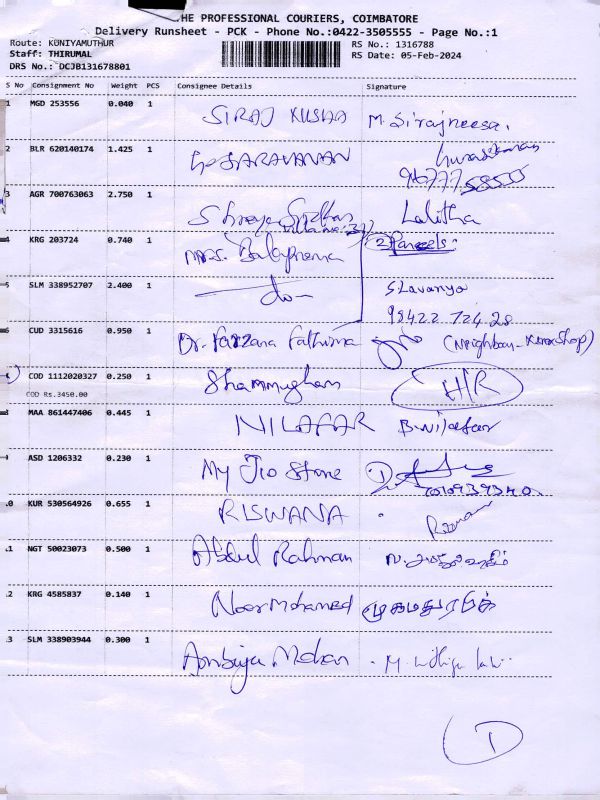 THE PROFESSIONAL COURIERS, COIMBATORE
Delivery Runsheet - PCK - Phone No.:0422-3505555 - Page No.:1
Route: KUNIYAMUTHUR
RS No.: 1316788
Staff: THIRUMAL
RS Date: 05-Feb-2024
DRS No.: DCJB131678801
S No Consignment No Weight PCS Consignee Details Signature
1 MGD 253556 0.040 1 SIRAJ KUSHA M. Sirajneesa.
2 BLR 620140174 1.425 1 SARAVANAN
3 AGR 700763063 2.750 1 Shreya Sridhar Lalitha
4 KRG 203724 0.740 1 Mrs. Balaprema 2 Parcels:
5 SLM 338952707 2.400 1 -do- S Lavanya
98422 724 28
6 CUD 3315616 0.950 1 Dr. Farzana Fathima (Neighbour - Xerox Shop)
COD 1112020327 0.250 1 Shanmugham H/R
COD Rs.3450.00
8 MAA 861447406 0.445 1 NILAFAR B. Nilafar
ASD 1206332 0.230 1 My Jio Store
.0 KUR 530564926 0.655 1 RISWANA
.1 NGT 50023073 0.500 1 Abdul Rahman
.2 KRG 4585837 0.140 1 Noor Mohamed
.3 SLM 338903944 0.300 1 Ambuja Mohan